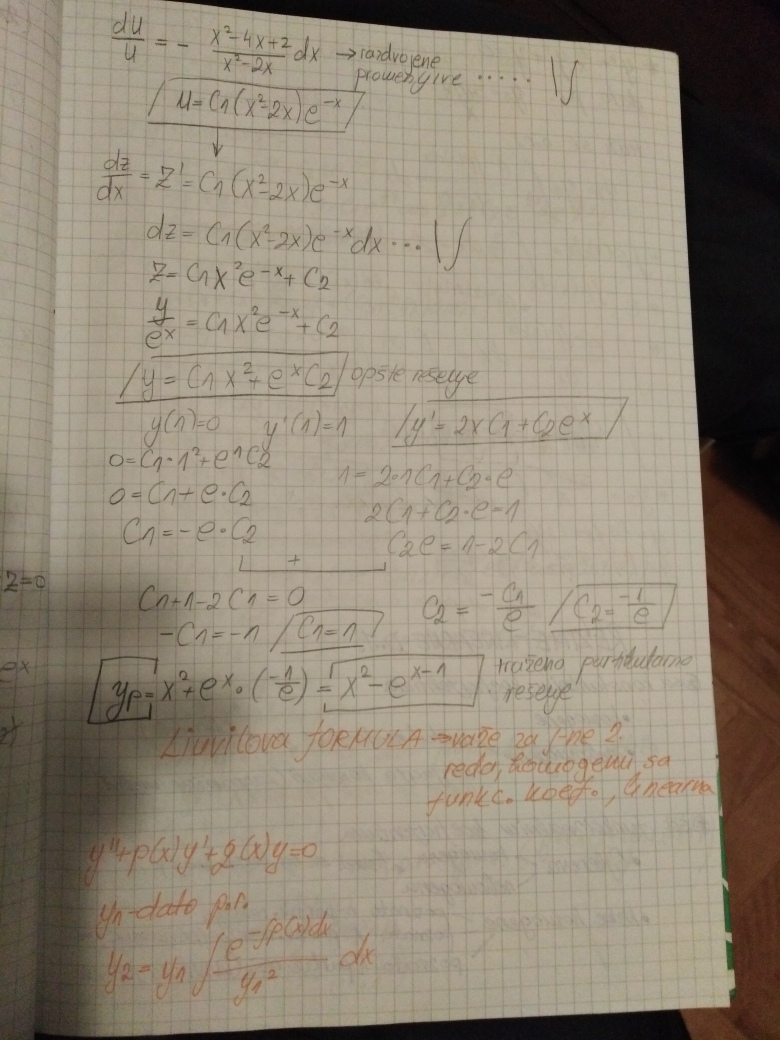 du/u = - (x²-4x+2)/(x²-2x) dx → razdvojene promenjive ..... \∫
u = C1(x²-2x)e^-x
↓
dz/dx = z' = C1(x²-2x)e^-x
dz = C1(x²-2x)e^-x dx ... \∫
z = C1x²e^-x + C2
y/e^x = C1x²e^-x + C2
y = C1x² + e^x C2 opšte rešenje
y(1)=0 y'(1)=1 y' = 2xC1 + C2e^x
0 = C1·1² + e^1C2 1 = 2·1C1 + C2·e
0 = C1 + e·C2 2C1 + C2·e = 1
C1 = -e·C2 C2e = 1-2C1
+
z=0
C1+1-2C1 = 0 C2 = -C1/e C2 = -1/e
-C1 = -1 C1=1
e^x
yp = x² + e^x·(-1/e) = x² - e^x-1 traženo partikularno rešenje
Liuvilova FORMULA → važe za j-ne 2.
reda, homogeni sa
funkc. koef., linearna
y''+p(x)y'+g(x)y=0
y1-dato p.r.
y2 = y1 ∫ e^-∫p(x)dx / y1² dx